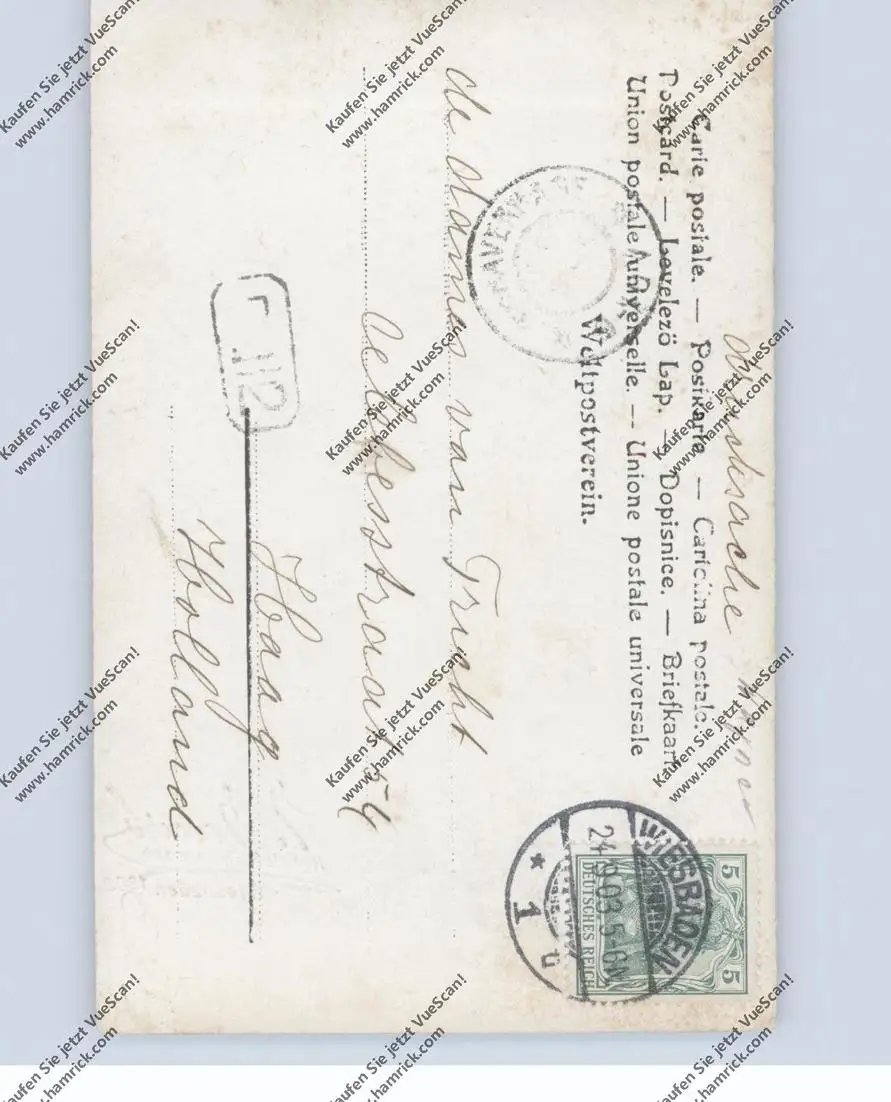 Drucksache
Carte postale. — Postkarte — Cartolina postale.
Postcard. — Levelező Lap. — Dopisnice. — Briefkaart
Union postale universelle. — Unione postale universale
Weltpostverein.
WIESBADEN
24.9.03. 5-6N
* 1 u
5 5
DEUTSCHES REICH
de dames van Tricht
straat 54
Haag
Holland
Kaufen Sie jetzt VueScan!
www.hamrick.com